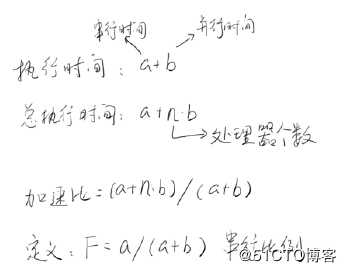 串行时间 并行时间
执行时间：a+b
总执行时间：a+n·b
处理器个数
加速比=(a+n·b)/(a+b)
定义：F=a/(a+b) 串行比例
@51CTO博客